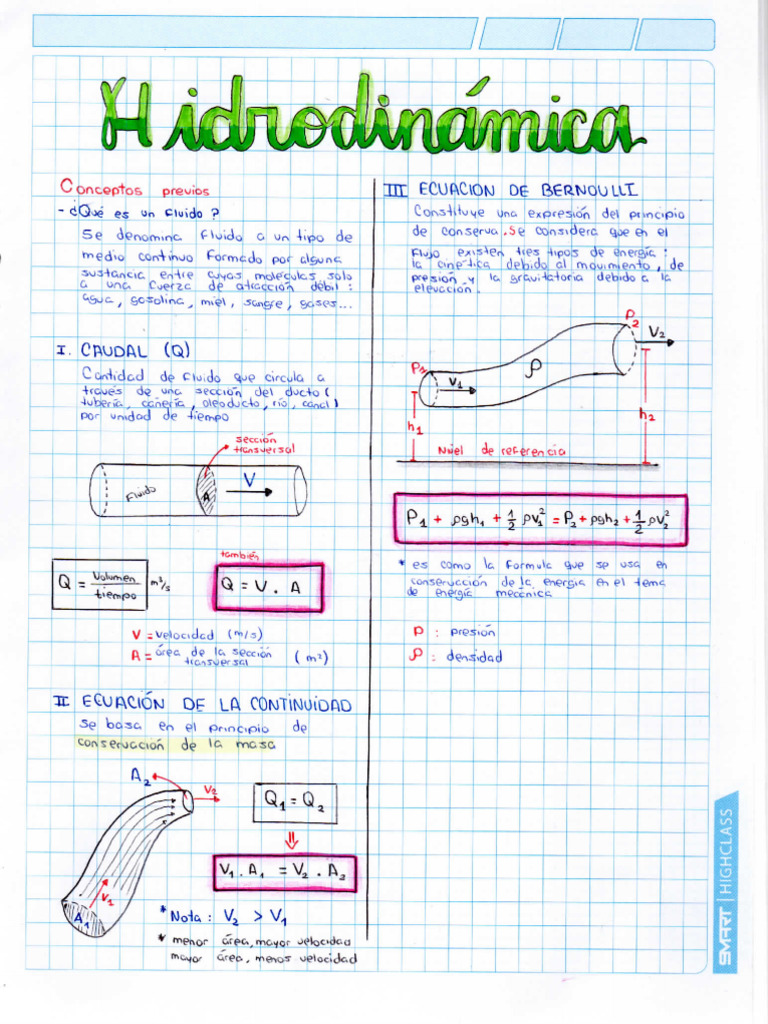 Hidrodinámica
Conceptos previos
- ¿Qué es un fluido?
Se denomina fluido a un tipo de
medio continuo formado por alguna
sustancia entre cuyas moléculas solo
a una fuerza de atracción débil:
agua, gasolina, miel, sangre, gases...
I. CAUDAL (Q)
Cantidad de fluido que circula a
través de una sección del ducto (
tubería, cañería, oleoducto, río, canal)
por unidad de tiempo
sección
transversal
Fluido
A
V
Q = Volumen / tiempo m³/s
también
Q = V . A
V = velocidad (m/s)
A = área de la sección transversal (m²)
II ECUACIÓN DE LA CONTINUIDAD
Se basa en el principio de
conservación de la masa
A₂
V₂
V₁
A₁
Q₁ = Q₂
⇓
V₁ . A₁ = V₂ . A₂
* Nota: V₂ > V₁
* menor área, mayor velocidad
mayor área, menos velocidad
III ECUACION DE BERNOULLI
Constituye una expresión del principio
de conserva. Se considera que en el
flujo existen tres tipos de energía:
la cinética debido al movimiento, de
presión y la gravitatoria debido a la
elevación.
P₂
V₂
P₁
V₁
ρ
h₁
h₂
Nivel de referencia
P₁ + ρgh₁ + 1/2 ρv₁² = P₂ + ρgh₂ + 1/2 ρv₂²
* es como la formula que se usa en
conservación de la energía en el tema
de energía mecánica
P : presión
ρ : densidad
SMART | HIGHCLASS